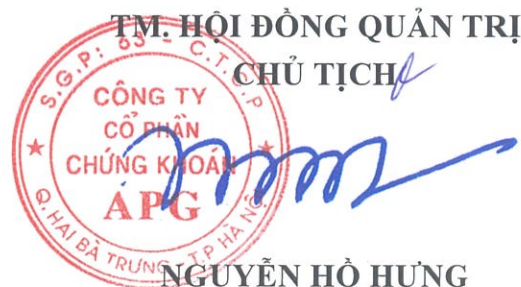 TM. HỘI ĐỒNG QUẢN TRỊ
CHỦ TỊCH
S.G.P: 63 - C.T.C.P
CÔNG TY
CỔ PHẦN
CHỨNG KHOÁN
APG
Q. HAI BÀ TRƯNG - T.P HÀ NỘI
NGUYỄN HỒ HƯNG